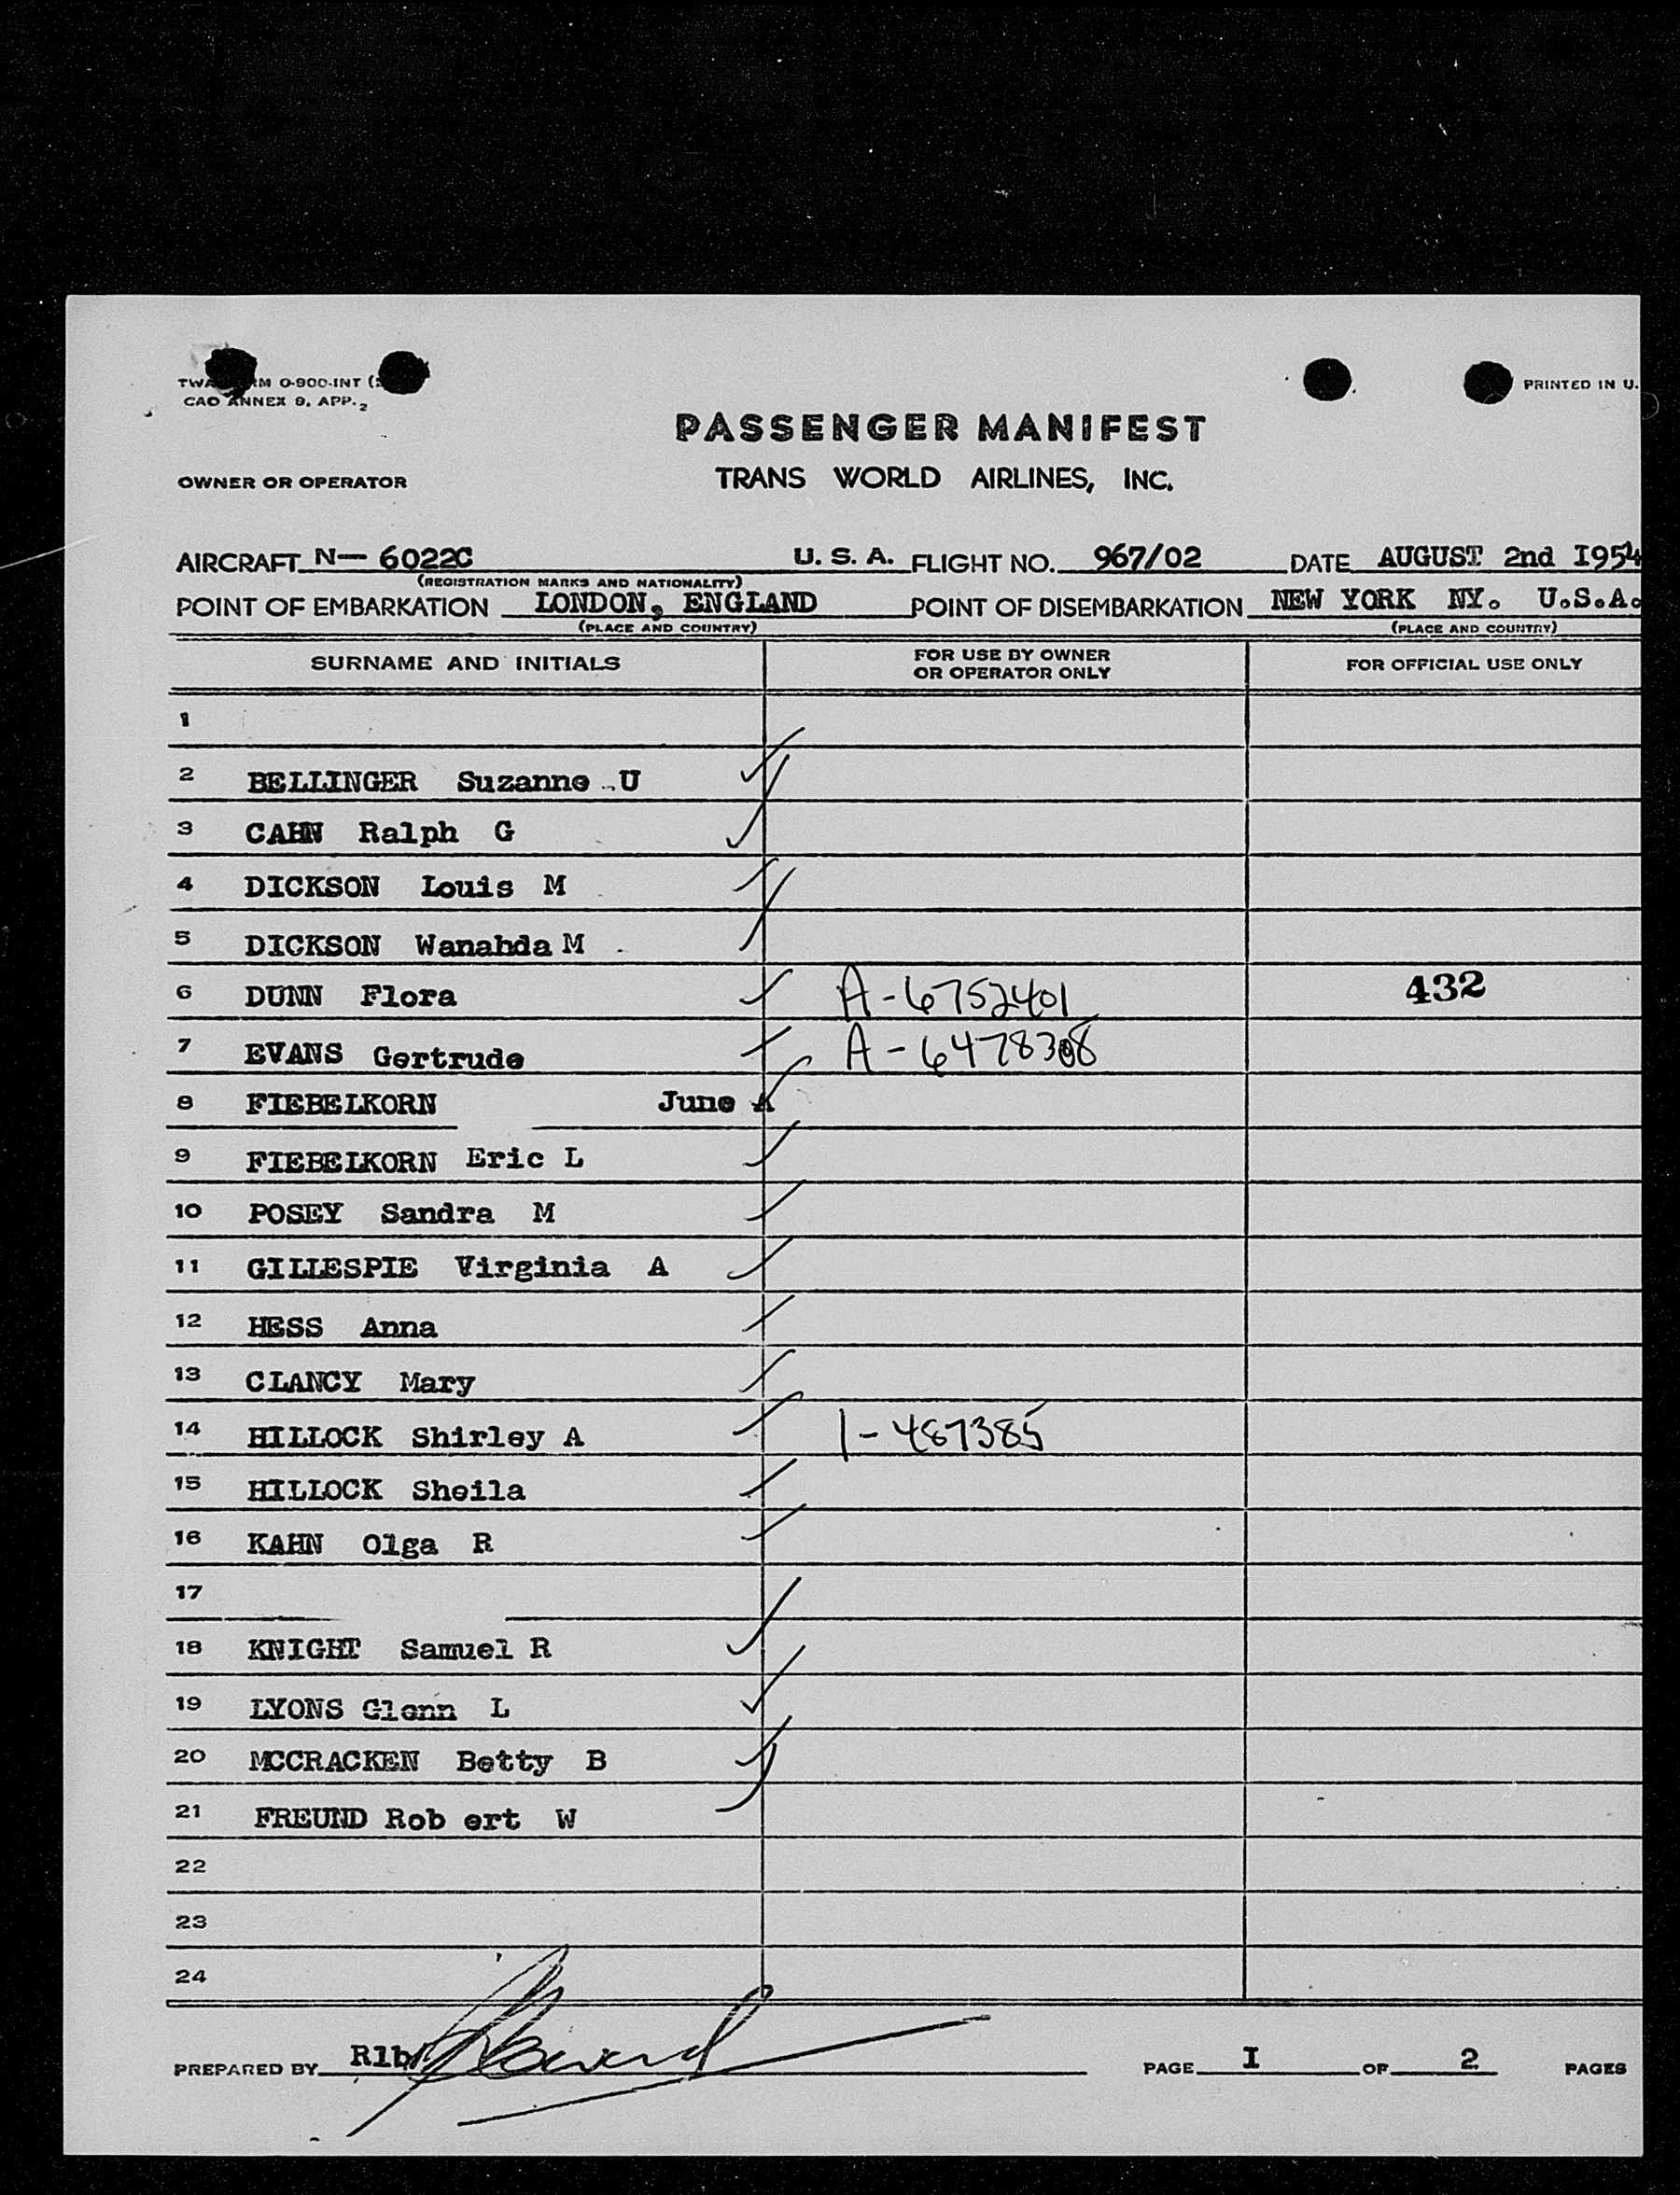 TWA RM O-900-INT (
CAO ANNEX 9. APP. 2
PRINTED IN U.
PASSENGER MANIFEST
OWNER OR OPERATOR TRANS WORLD AIRLINES, INC.
AIRCRAFT N— 6022C U. S. A. FLIGHT NO. 967/02 DATE AUGUST 2nd I954
(REGISTRATION MARKS AND NATIONALITY)
POINT OF EMBARKATION LONDON, ENGLAND POINT OF DISEMBARKATION NEW YORK NY. U.S.A.
(PLACE AND COUNTRY) (PLACE AND COUNTRY)
SURNAME AND INITIALS FOR USE BY OWNER OR OPERATOR ONLY FOR OFFICIAL USE ONLY
1
2 BELLINGER Suzanne U
3 CAHN Ralph G
4 DICKSON Louis M
5 DICKSON Wanahda M
6 DUNN Flora A-6752401 432
7 EVANS Gertrude A-6478308
8 FIEBELKORN June A
9 FIEBELKORN Eric L
10 POSEY Sandra M
11 GILLESPIE Virginia A
12 HESS Anna
13 CLANCY Mary
14 HILLOCK Shirley A 1-487385
15 HILLOCK Sheila
16 KAHN Olga R
17
18 KNIGHT Samuel R
19 LYONS Glenn L
20 MCCRACKEN Betty B
21 FREUND Rob ert W
22
23
24
PREPARED BY Rlb PAGE I OF 2 PAGES